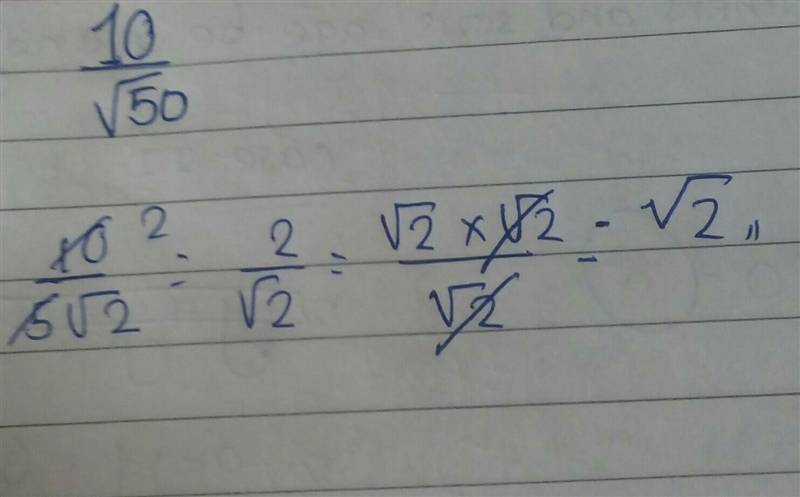 10/√50
10/5√2 2 = 2/√2 = √2 × √2/√2 = √2 〃